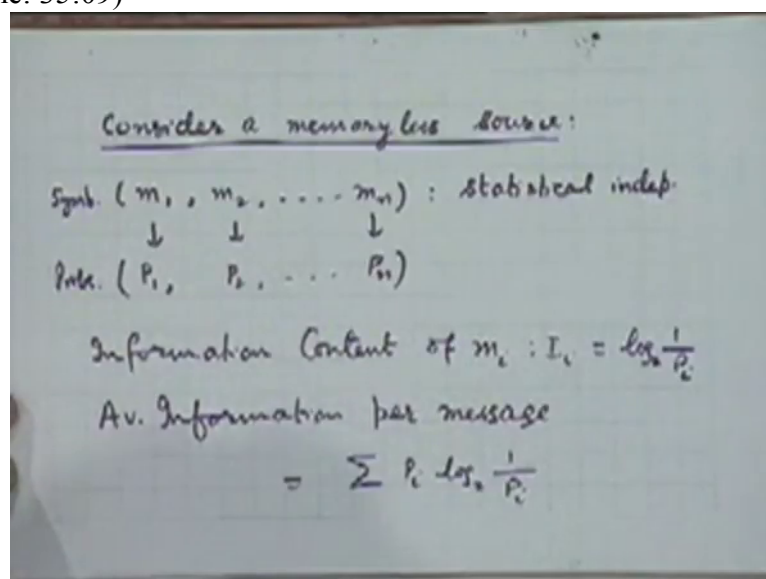 Consider a memoryless source:
Symb. (m₁, m₂, .... mₙ) : statistical indep.
↓ ↓ ↓
Prob. (P₁, P₂, ... Pₙ)
Information Content of mᵢ : Iᵢ = log₂ 1/Pᵢ
Av. Information per message
= Σ Pᵢ log₂ 1/Pᵢ